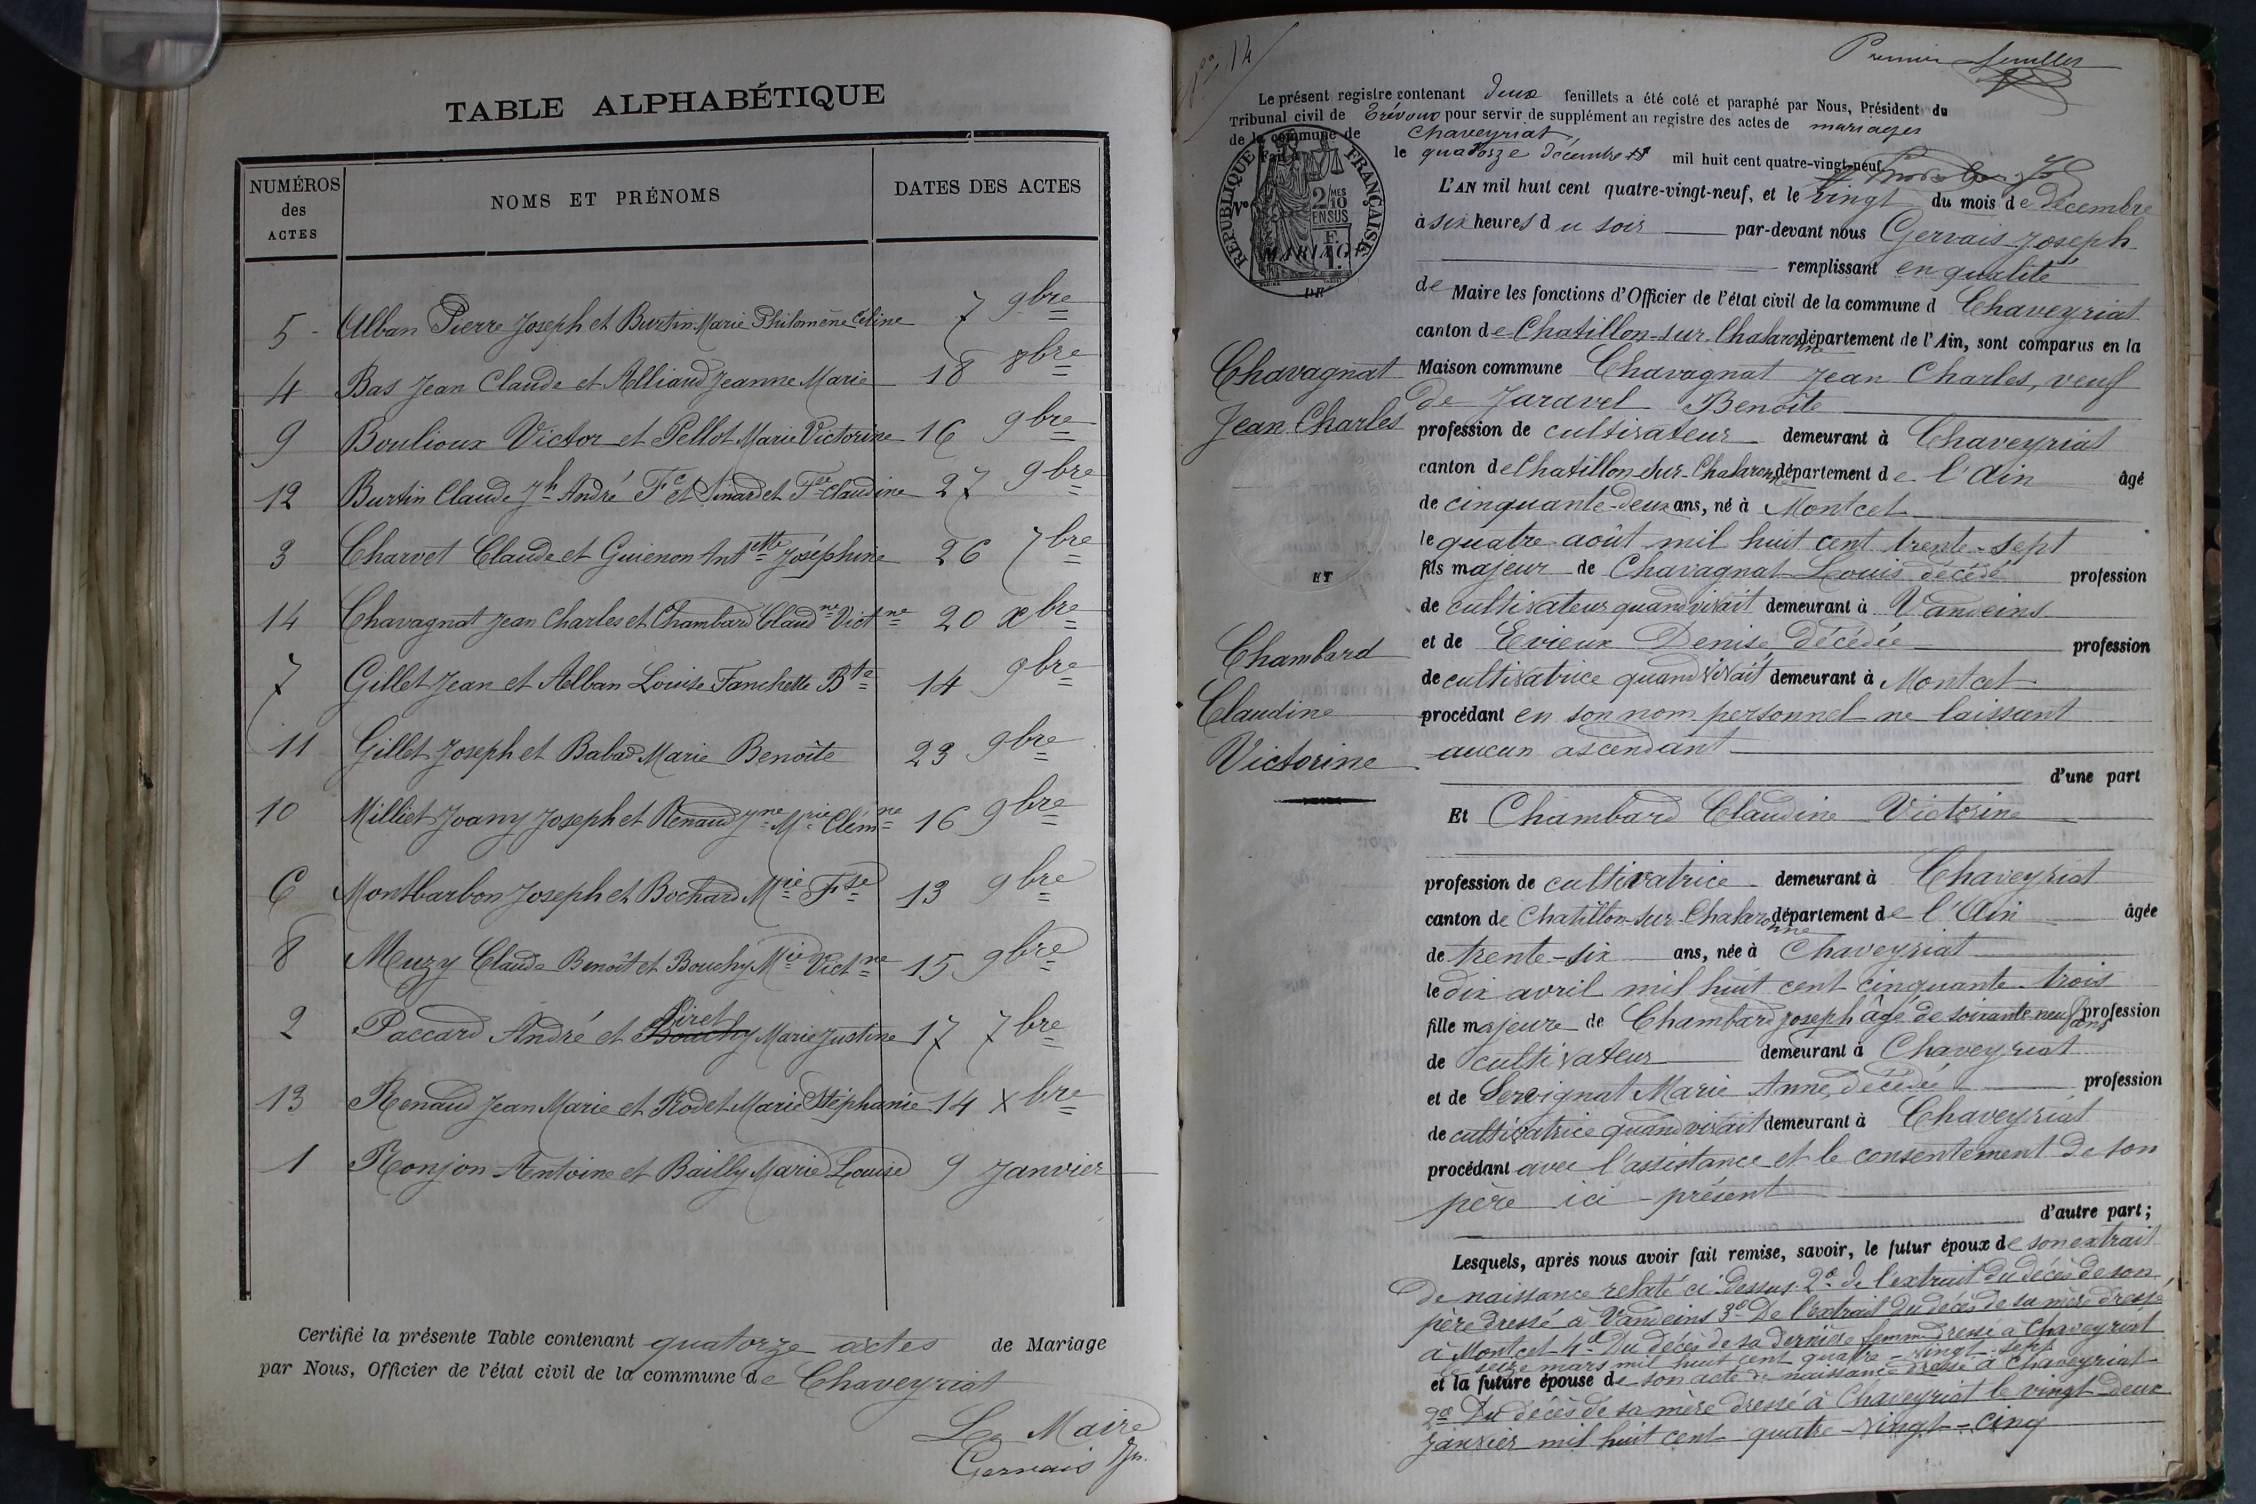 TABLE ALPHABÉTIQUE
NUMÉROS des ACTES
NOMS ET PRÉNOMS
DATES DES ACTES
5 - Alban Pierre Joseph et Burtin Marie Philomène Céline 7 9bre
4 Bas Jean Claude et Alliaud Jeanne Marie 18 8bre
9 Boulioux Victor et Pellot Marie Victorine 16 9bre
12 Burtin Claude Jh André Fc et Sinardet Fse Claudine 27 9bre
3 Charvet Claude et Guienon Antette Joséphine 26 7bre
14 Chavagnat Jean Charles et Chambard Claudne Victne 20 xbre
7 Gillet Jean et Alban Louise Fanchette Bte 14 9bre
11 Gillet Joseph et Babad Marie Benoîte 23 9bre
10 Milliet Joany Joseph et Renaud Jne Mrie Clémne 16 9bre
6 Montbarbon Joseph et Bochard Mrie Fse 13 9bre
8 Muzy Claude Benoît et Bouchy Mrie Victne 15 9bre
2 Paccard André et Bouchy Siret Marie Justine 17 7bre
13 Renaud Jean Marie et Rodet Marie Stéphanie 14 xbre
1 Ronjon Antoine et Bailly Marie Louise 9 Janvier
Certifié la présente Table contenant quatorze actes de Mariage
par Nous, Officier de l'état civil de la commune de Chaveyriat
Le Maire
Gervais Jh.
No 14
Premier feuillet
Le présent registre contenant deux feuillets a été coté et paraphé par Nous, Président du
Tribunal civil de Trévoux pour servir de supplément au registre des actes de mariages
de la commune de Chaveyriat,
Fait à le quatorze décembre mil huit cent quatre-vingt-neuf
RÉPUBLIQUE FRANÇAISE
2/10 MES
EN SUS
MARIAGE
DE
Chavagnat
Jean Charles
ET
Chambard
Claudine
Victorine
L'AN mil huit cent quatre-vingt-neuf, et le vingt du mois de décembre
à six heures du soir par-devant nous Gervais Joseph
remplissant en qualité
de Maire les fonctions d'Officier de l'état civil de la commune d Chaveyriat
canton de Chatillon-sur-Chalaronne département de l'Ain, sont comparus en la
Maison commune Chavagnat Jean Charles, veuf
de Jaravel Benoîte
profession de cultivateur demeurant à Chaveyriat
canton de Chatillon-sur-Chalaronne département de l'Ain âgé
de cinquante-deux ans, né à Montcet
le quatre août mil huit cent trente-sept
fils majeur de Chavagnat Louis décédé profession
de cultivateur quand vivait demeurant à Vandeins
et de Evieux Denise décédée profession
de cultivatrice quand vivait demeurant à Montcet
procédant en son nom personnel ne laissant
aucun ascendant
d'une part
Et Chambard Claudine Victorine
profession de cultivatrice demeurant à Chaveyriat
canton de Chatillon-sur-Chalaronne département de l'Ain âgée
de trente-six ans, née à Chaveyriat
le dix avril mil huit cent cinquante-trois
fille majeure de Chambard Joseph âgé de soixante-neuf ans profession
de cultivateur demeurant à Chaveyriat
et de Servignat Marie Anne, décédée profession
de cultivatrice quand vivait demeurant à Chaveyriat
procédant avec l'assistance et le consentement de son
père ici-présent
d'autre part;
Lesquels, après nous avoir fait remise, savoir, le futur époux de son extrait
de naissance relaté ci-dessus. 2o de l'extrait du décès de son
père dressé à Vandeins 3o De l'extrait du décès de sa mère dressé
à Montcet 4o Du décès de sa dernière femme dressé à Chaveyriat
le seize mars mil huit cent quatre-vingt-sept
et la future épouse de son acte de naissance dressé à Chaveyriat
2o Du décès de sa mère dressé à Chaveyriat le vingt-deux
janvier mil huit cent quatre-vingt-cinq